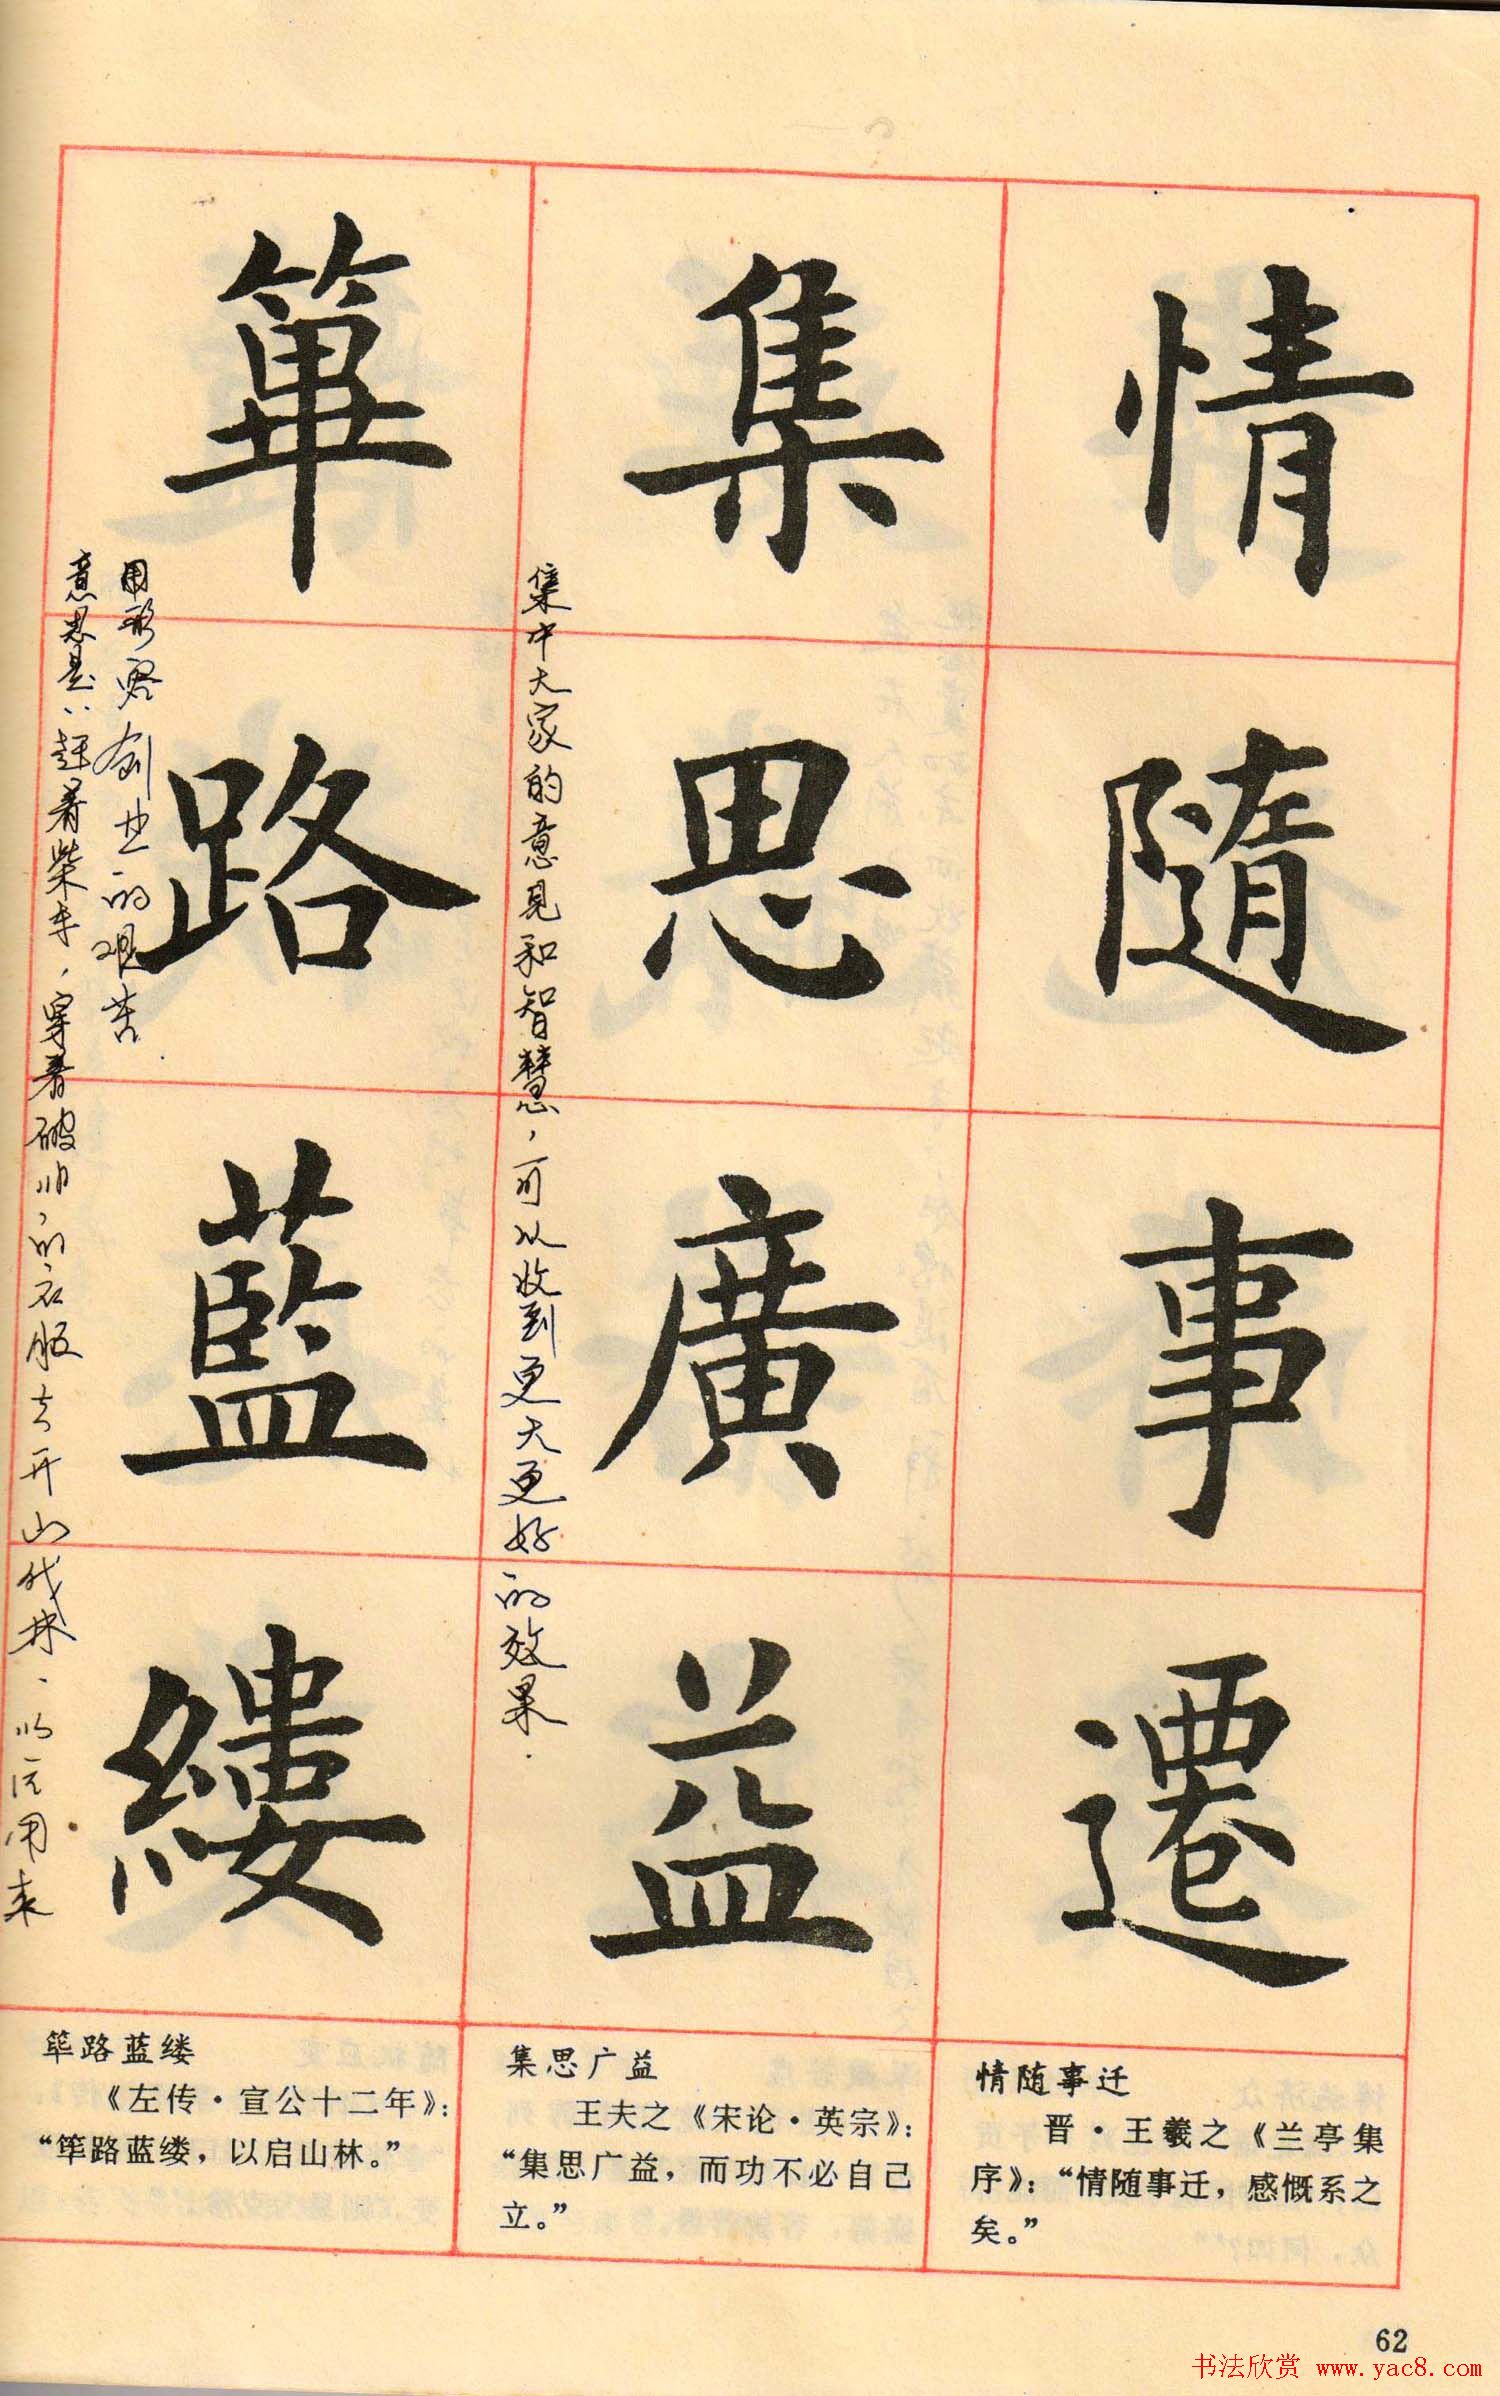 情随事遷
集思廣益
篳路藍縷
集中大家的意见和智慧，可以收到更大更好的效果．
意思是：赶着柴车，穿着破旧的衣服去开山伐林，以后用来
用形容创业的艰苦
情随事迁
晋·王羲之《兰亭集
序》：“情随事迁，感慨系之
矣。”
集思广益
王夫之《宋论·英宗》：
“集思广益，而功不必自己
立。”
筚路蓝缕
《左传·宣公十二年》：
“筚路蓝缕，以启山林。”
62
书法欣赏 www.yac8.com